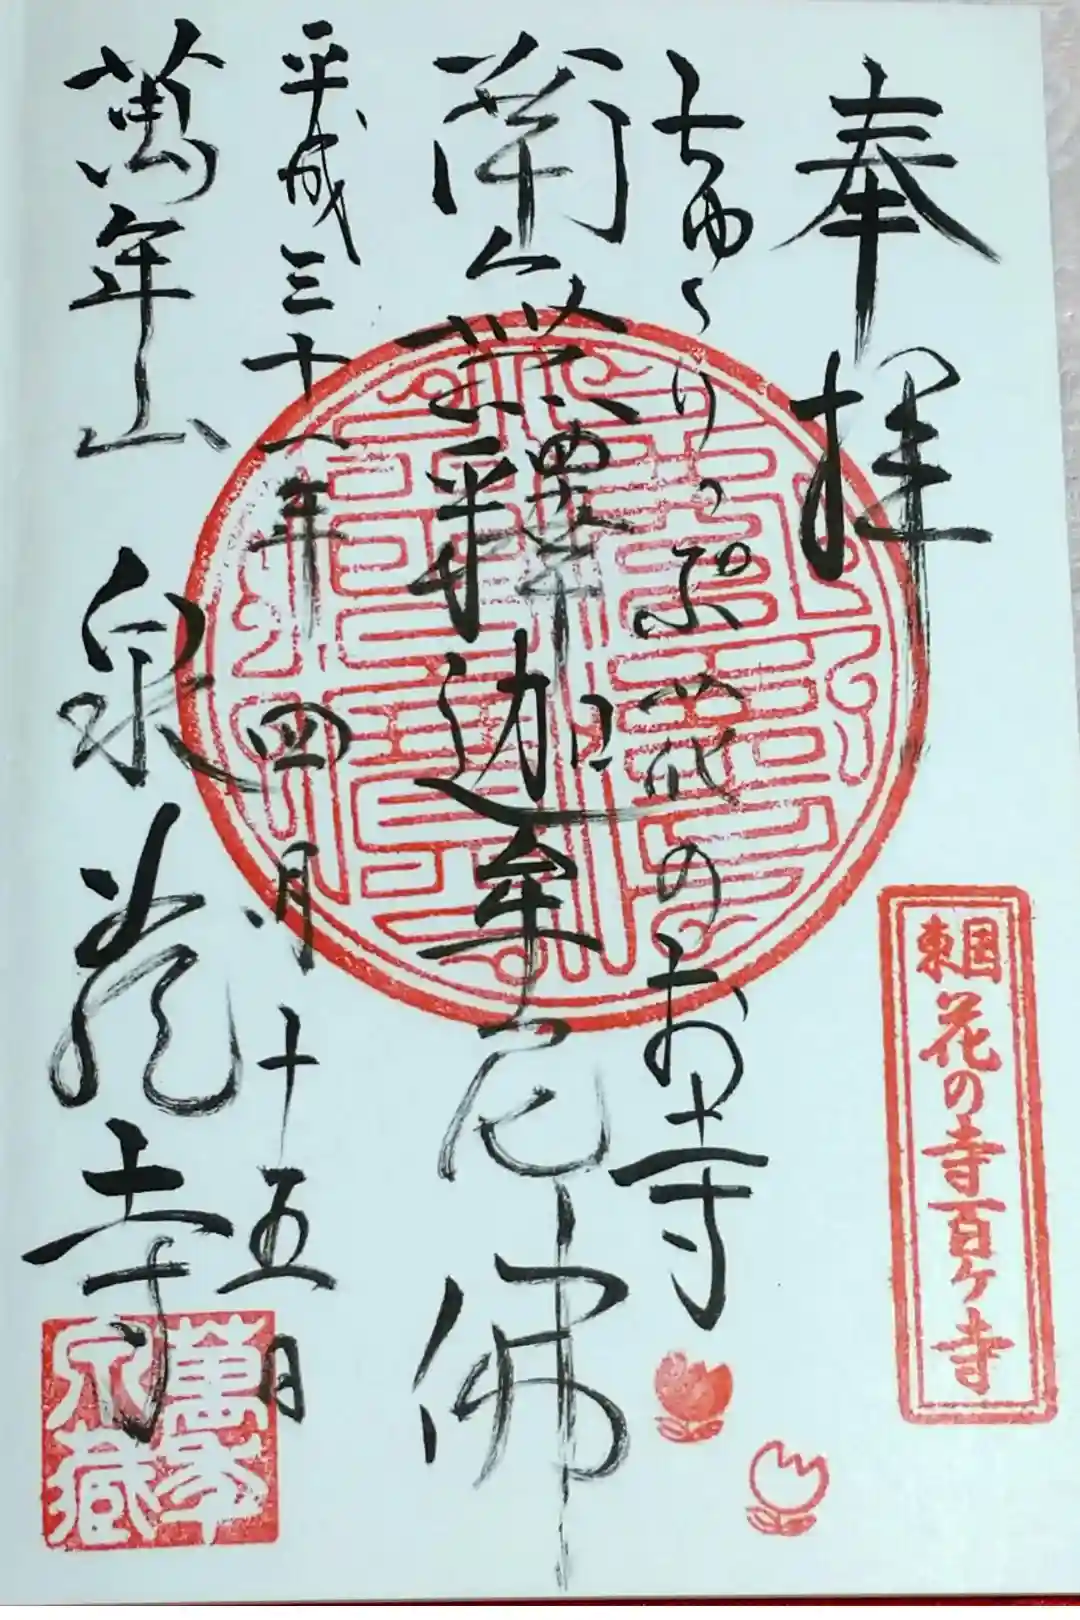 奉拝
ちゅうりっぷ花のお寺
南無釋迦牟尼佛
平成三十一年四月十五日
萬年山 泉 寺
東国花の寺百ヶ寺
萬年
泉藏